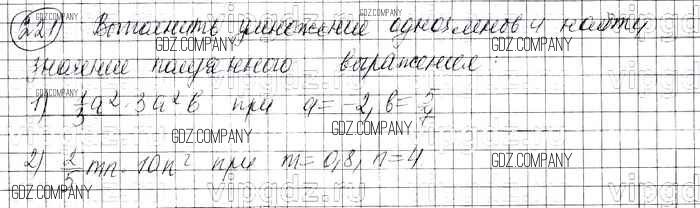 221) Выполнить умножение одночленов и найти
значение полученного выражения:
1) 1/3 a² · 3a²b при a = -2, b = 5/7
2) 2/5 mn · 10n² при m = 0,8, n = 4
GDZ.COMPANY
GDZ.COMPANY
GDZ.COMPANY
GDZ.COMPANY
GDZ.COMPANY
GDZ.COMPANY
GDZ.COMPANY
GDZ.COMPANY
GDZ.COMPANY
GDZ.COMPANY
GDZ.COMPANY
GDZ.COMPANY
vipgdz.ru
vipgdz.ru